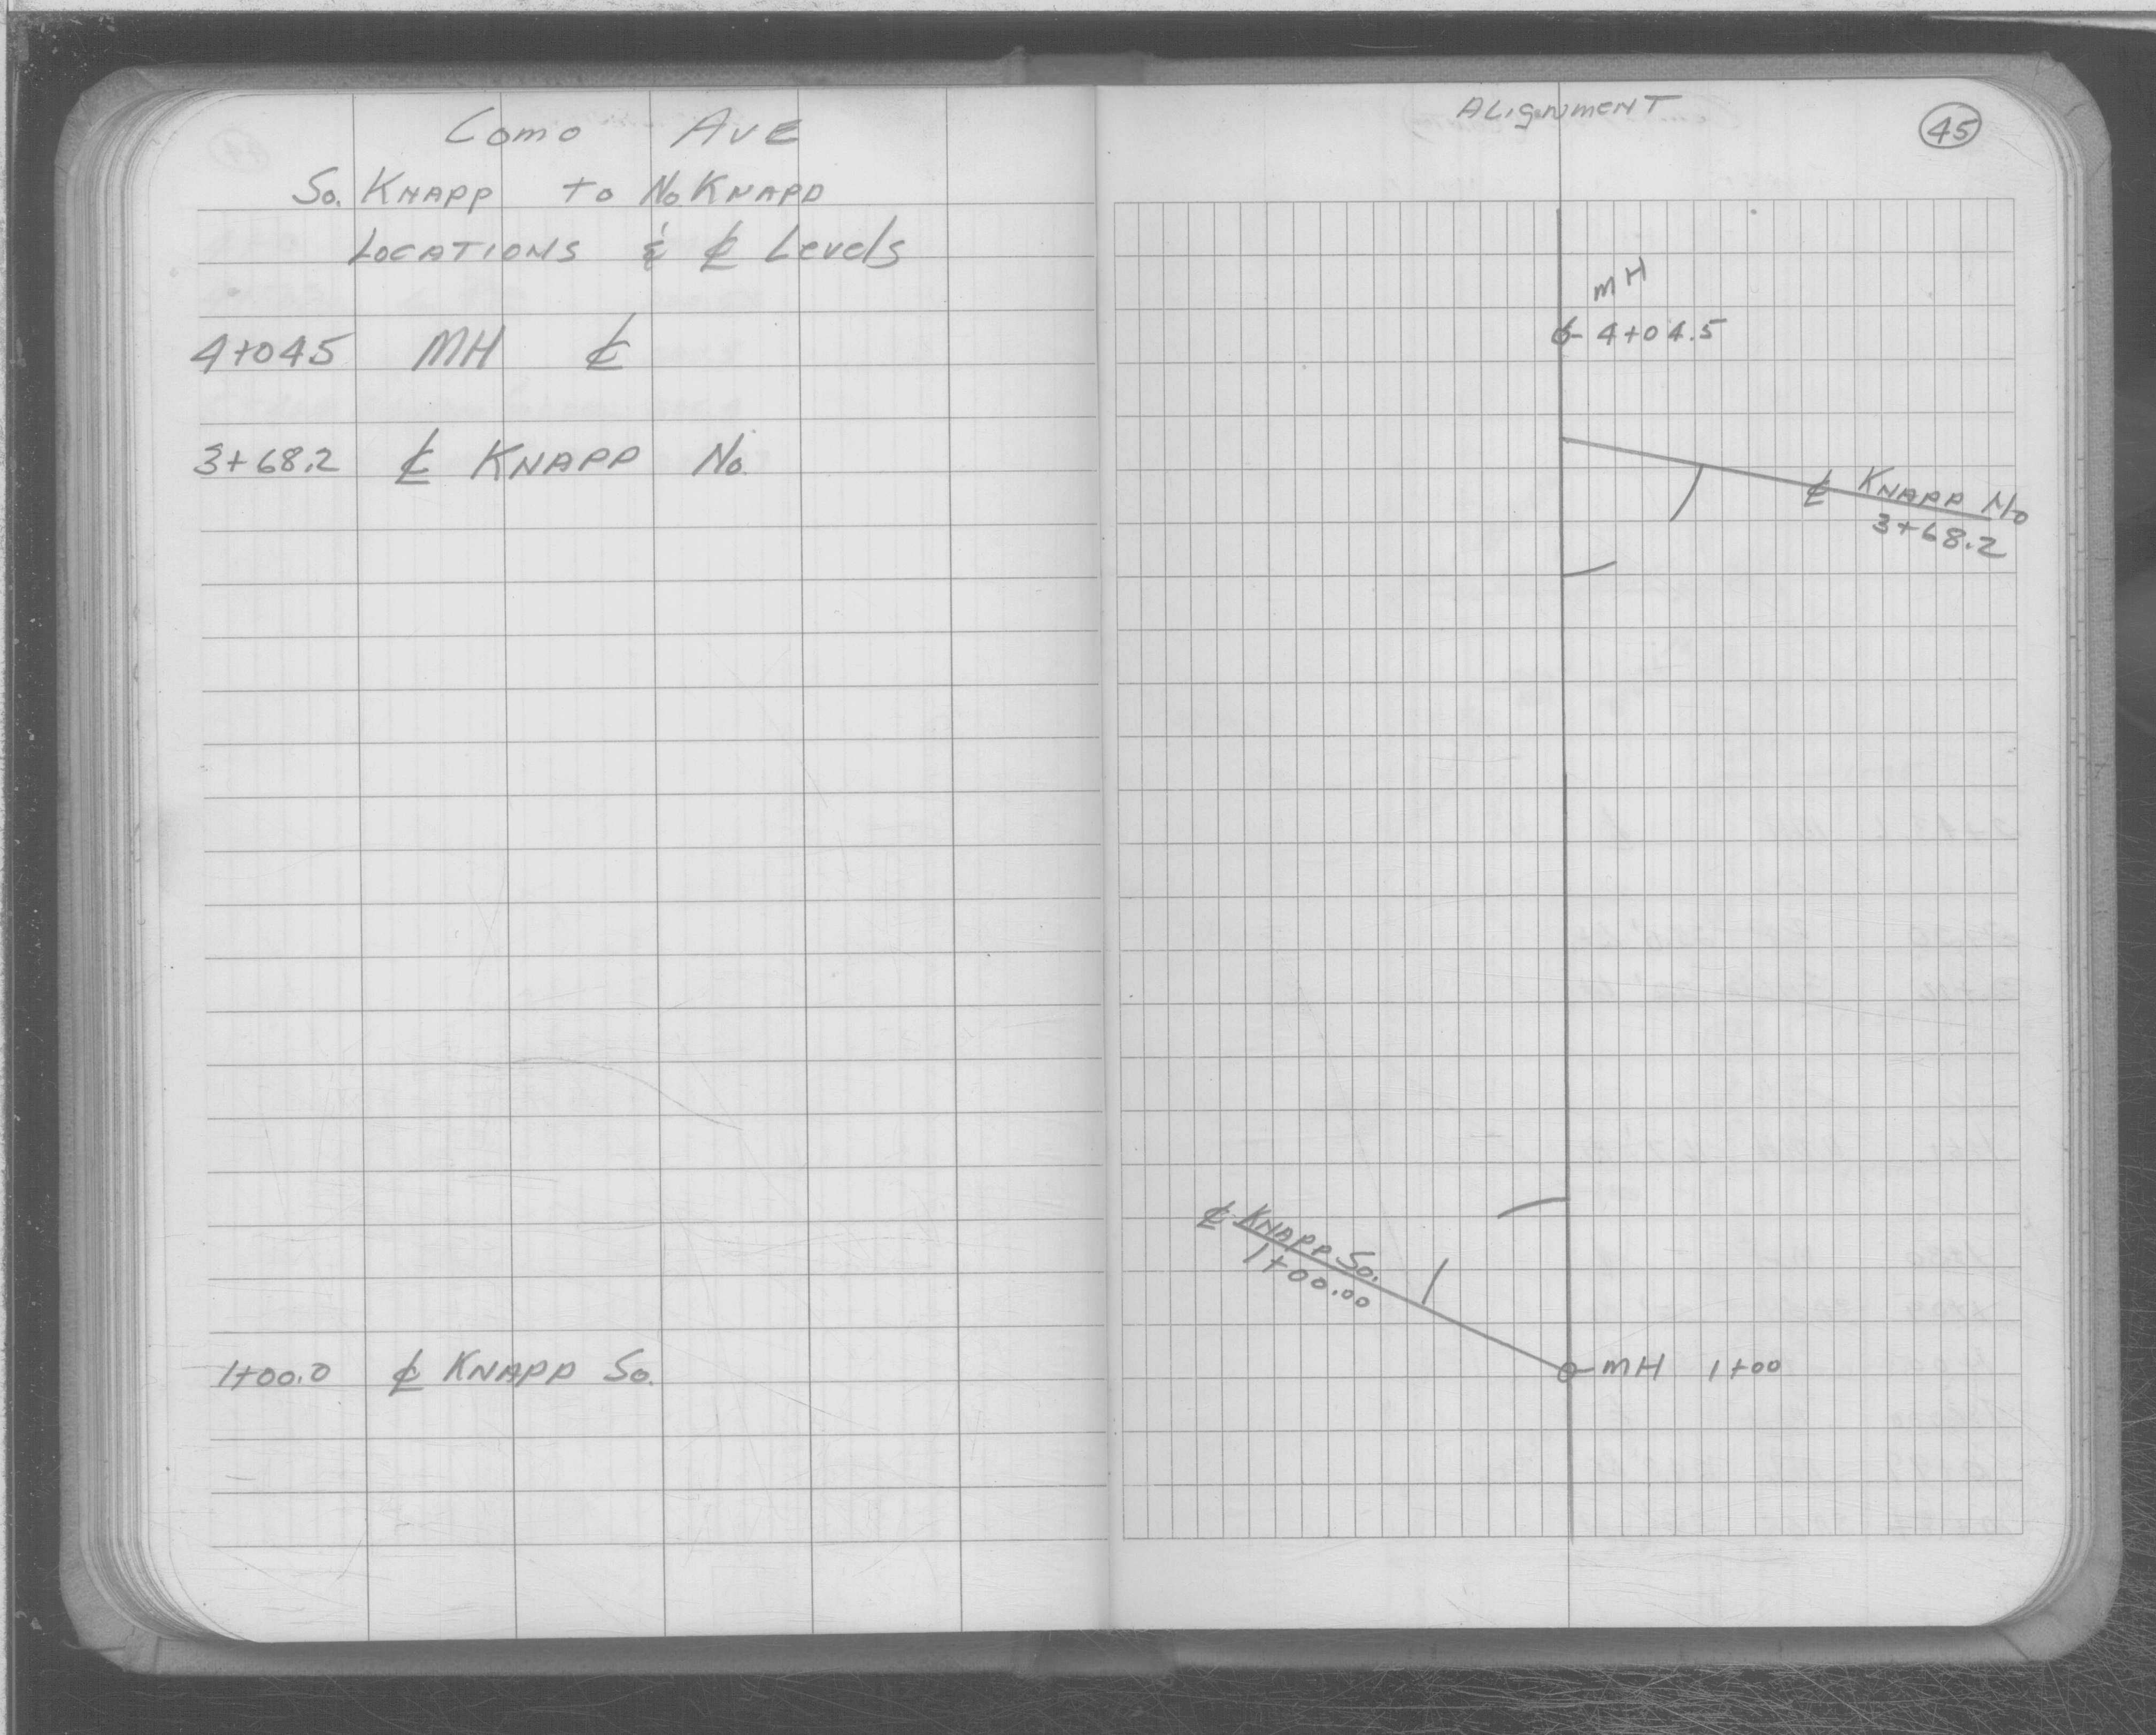 Como Ave
So. Knapp to No Knapp
Locations & ℄ Levels
4+045 MH ℄
3+68.2 ℄ Knapp No.
1+00.0 ℄ Knapp So.
Alignment
45
MH
4+04.5
℄ Knapp No
3+68.2
℄ Knapp So.
1+00.00
MH 1+00